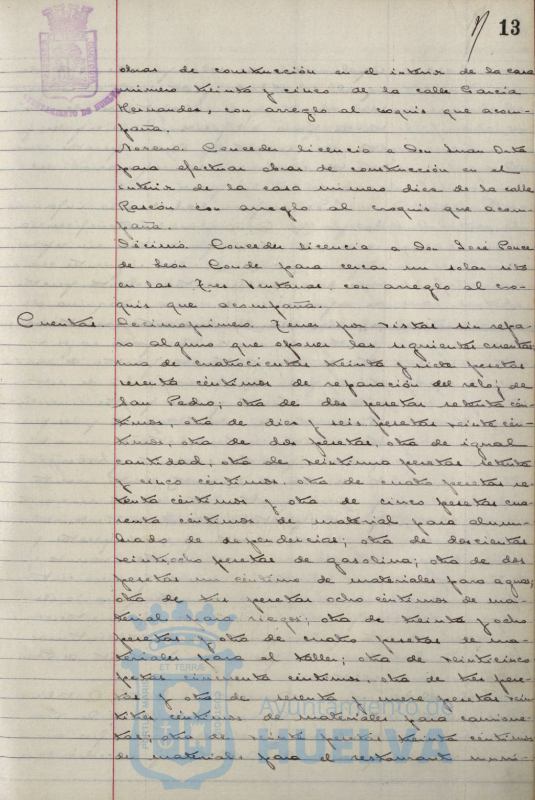 13
obras de construcción en el interior de la casa
número treinta y cinco de la calle García
Hernández, con arreglo al croquis que acom-
paña.
Noveno. Conceder licencia a Don Juan Orta
para efectuar obras de construcción en el
interior de la casa número diez de la calle
Rascón con arreglo al croquis que acom-
paña.
Décimo. Conceder licencia a Don José Ponce
de León Conde para cercar un solar sito
en las Tres Ventanas, con arreglo al cro-
quis que acompaña.
Cuentas. Decimoprimero. Tener por vistas sin repa-
ro alguno que oponer las siguientes cuentas:
una de cuatrocientas treinta y siete pesetas
sesenta céntimos de reparación del reloj de
San Pedro; otra de dos pesetas setenta cén-
timos, otra de diez y seis pesetas veinte cén-
timos, otra de dos pesetas, otra de igual
cantidad, otra de veintiuna pesetas setenta
y cinco céntimos, otra de cuatro pesetas se-
tenta céntimos y otra de cinco pesetas cua-
renta céntimos de material para alum-
brado de dependencias; otra de doscientas
veintiocho pesetas de gasolina; otra de dos
pesetas un céntimo de materiales para aguas;
otra de tres pesetas ocho céntimos de ma-
terial para riegos; otra de treinta y ocho
pesetas y otra de cuatro pesetas de ma-
teriales para el taller; otra de veinticinco
pesetas cincuenta céntimos, otra de tres pese-
tas y otra de sesenta y nueve pesetas vein-
titrés céntimos de materiales para camione-
tas; otra de veinte pesetas treinta céntimos
de material para el restaurant muni-
Ayuntamiento de
HUELVA